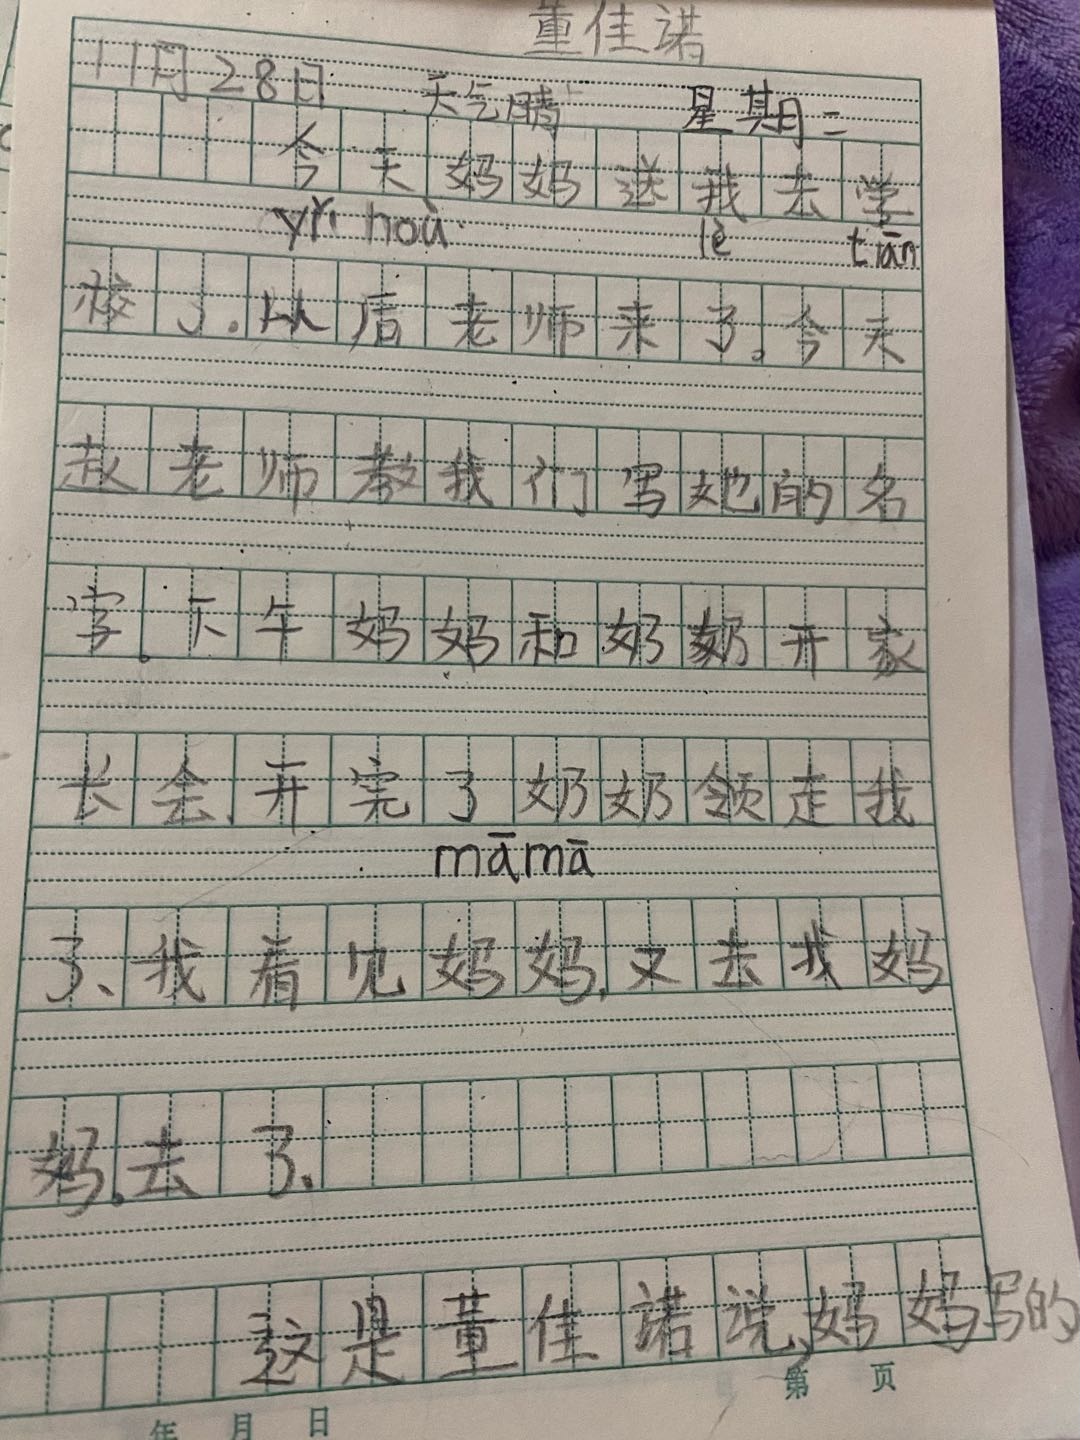 董佳诺
11月28日 天气晴 星期二
今天妈妈送我去学
yǐ hoù lè tiān
校了.以后老师来了。今天
赵老师教我们写她的名
字。下午妈妈和奶奶开家
长会.开完了奶奶领走我
māmā
了、我看见妈妈.又去我妈
妈.去了.
这是董佳诺说,妈妈写的
第 页
年 月 日